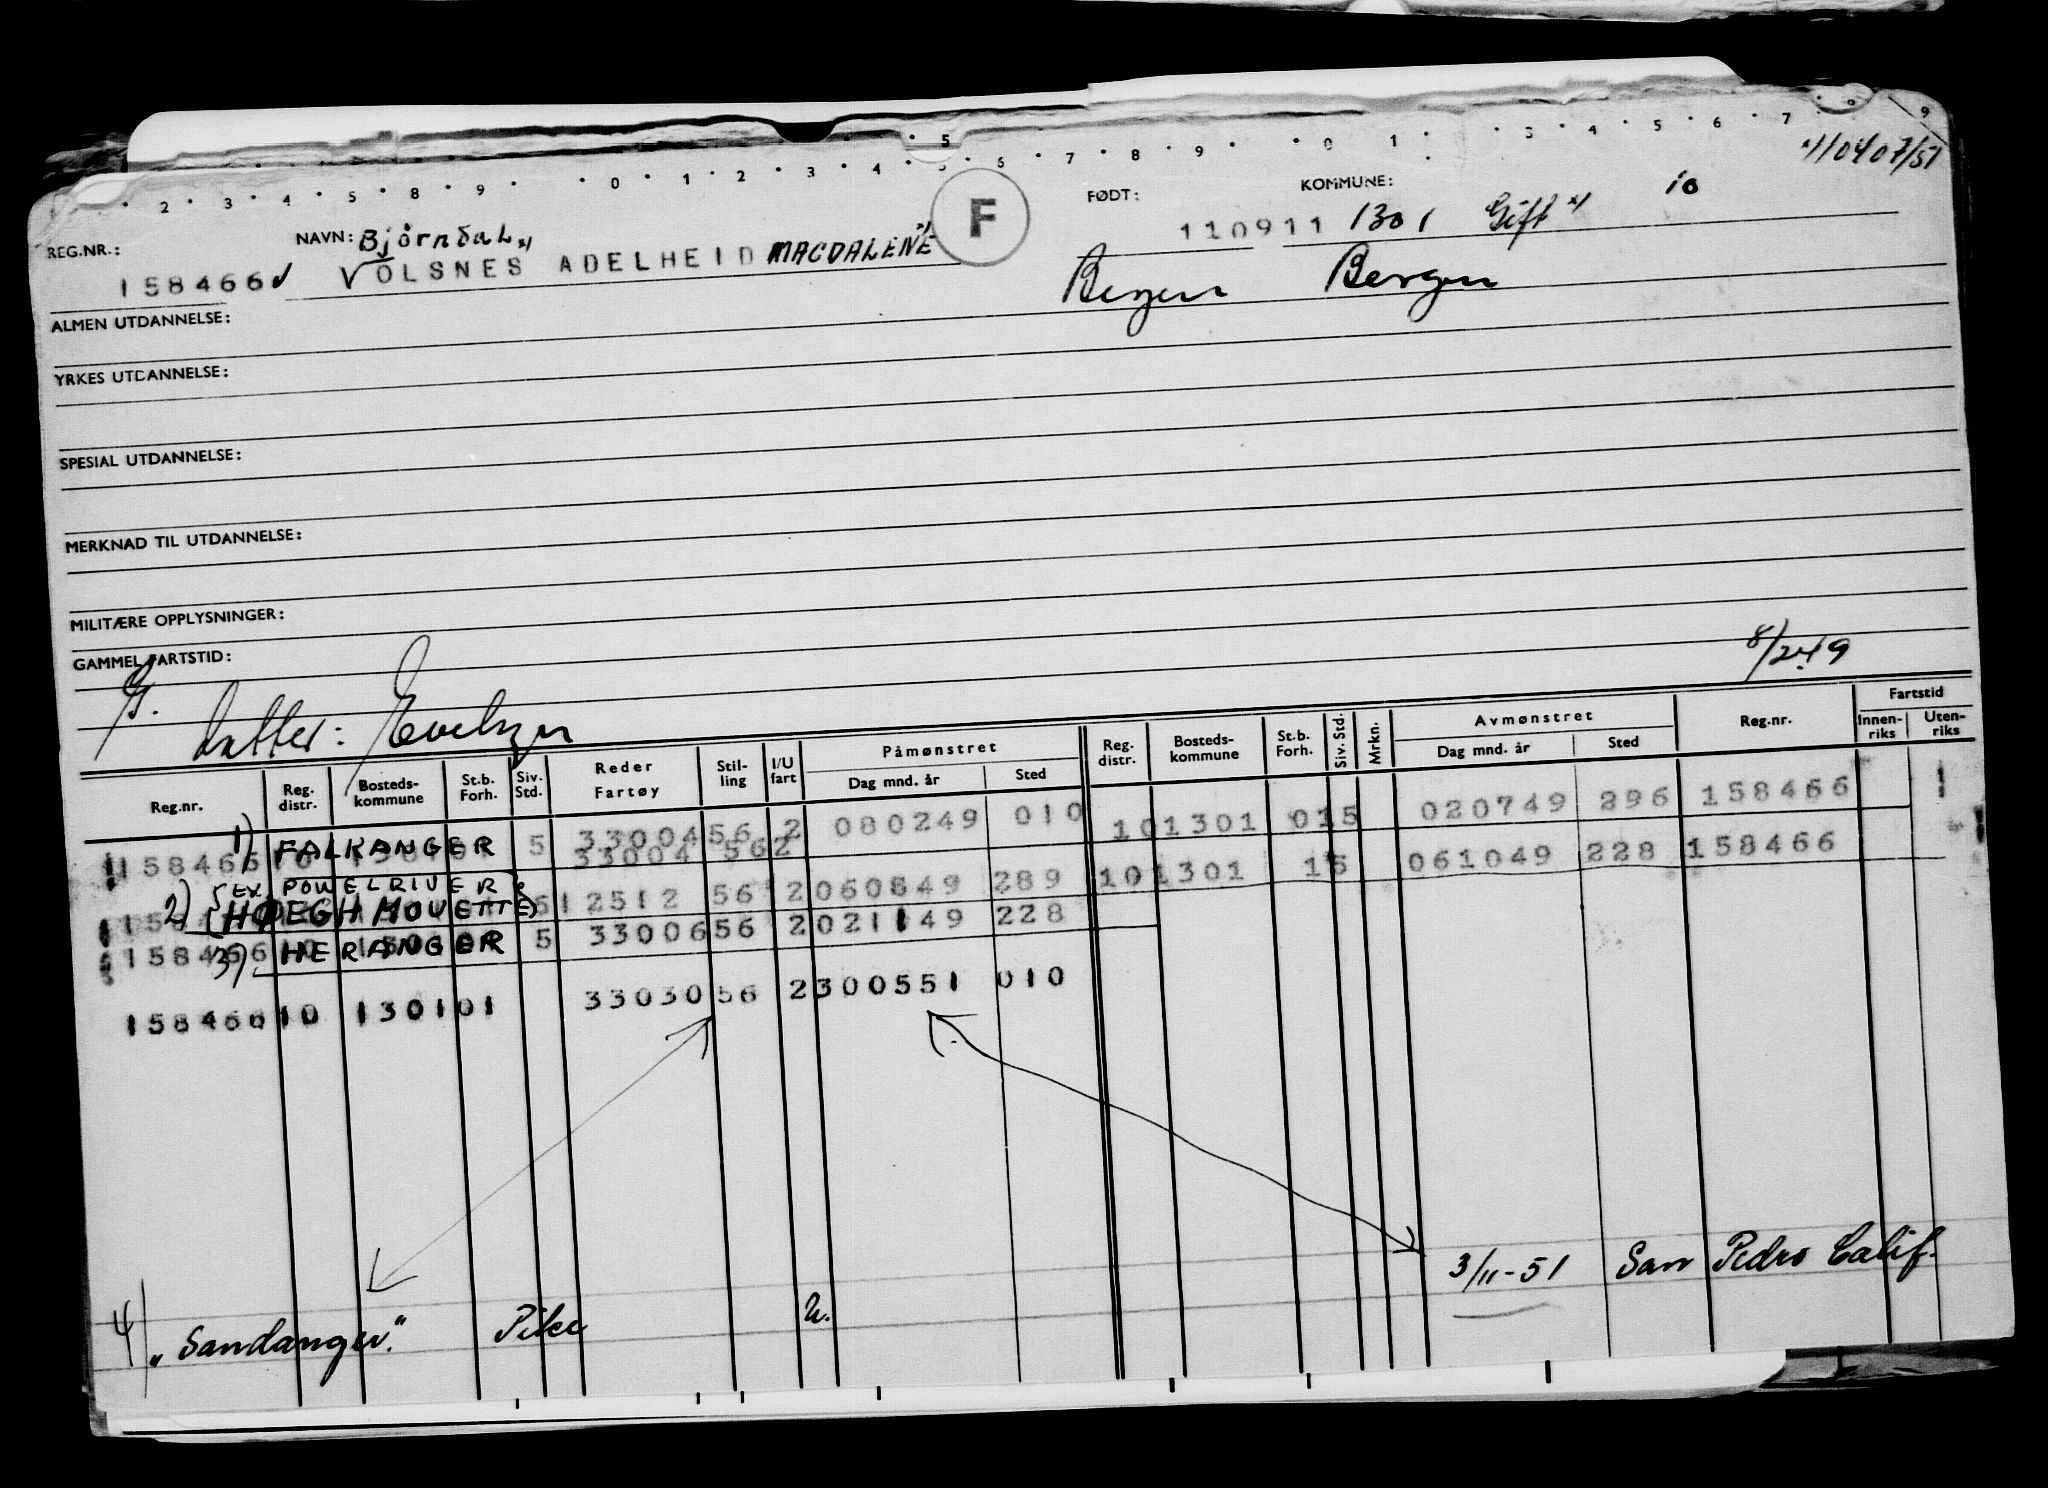 5
2 3 4 5 8 9 0 1 2 3 4 5 6 7 8 9 0 1 3 4 5 6 7 8 9
110407/51
REG.NR.: NAVN: Bjørndal x/ F FØDT: KOMMUNE: 10
158466 √ VOLSNES ADELHEID MAGDALENE x/ 110911 1301 Gift x/
Bergen Bergen
ALMEN UTDANNELSE:
YRKES UTDANNELSE:
SPESIAL UTDANNELSE:
MERKNAD TIL UTDANNELSE:
MILITÆRE OPPLYSNINGER:
GAMMEL FARTSTID:
8/2-49
datter: Evelyn
Reg.nr. Reg. distr. Bosteds-kommune St.b. Forh. Siv. Std. Reder Fartøy Stil-ling I/U fart Påmønstret Dag mnd. år Sted Reg. distr. Bosteds-kommune St.b. Forh. Siv. Std. Mrkn. Avmønstret Dag mnd. år Sted Reg.nr. Fartstid Innen-riks Uten-riks
1) FALKANGER 5 33004 56 2 080249 010 10 1301 01 5 020749 296 158466 1
158466 10 33004 56 2
2) {EX. POWELRIVER
HØEGH MOUETTE) 5 12512 56 2 060849 289 10 1301 1 5 061049 228 158466
158466 10 3) HERANGER 5 33006 56 2 021149 228
158466 10 1301 01 33030 56 2 300551 010
3/11-51 San Pedro Calif.
4) "Sandanger" Pike U.